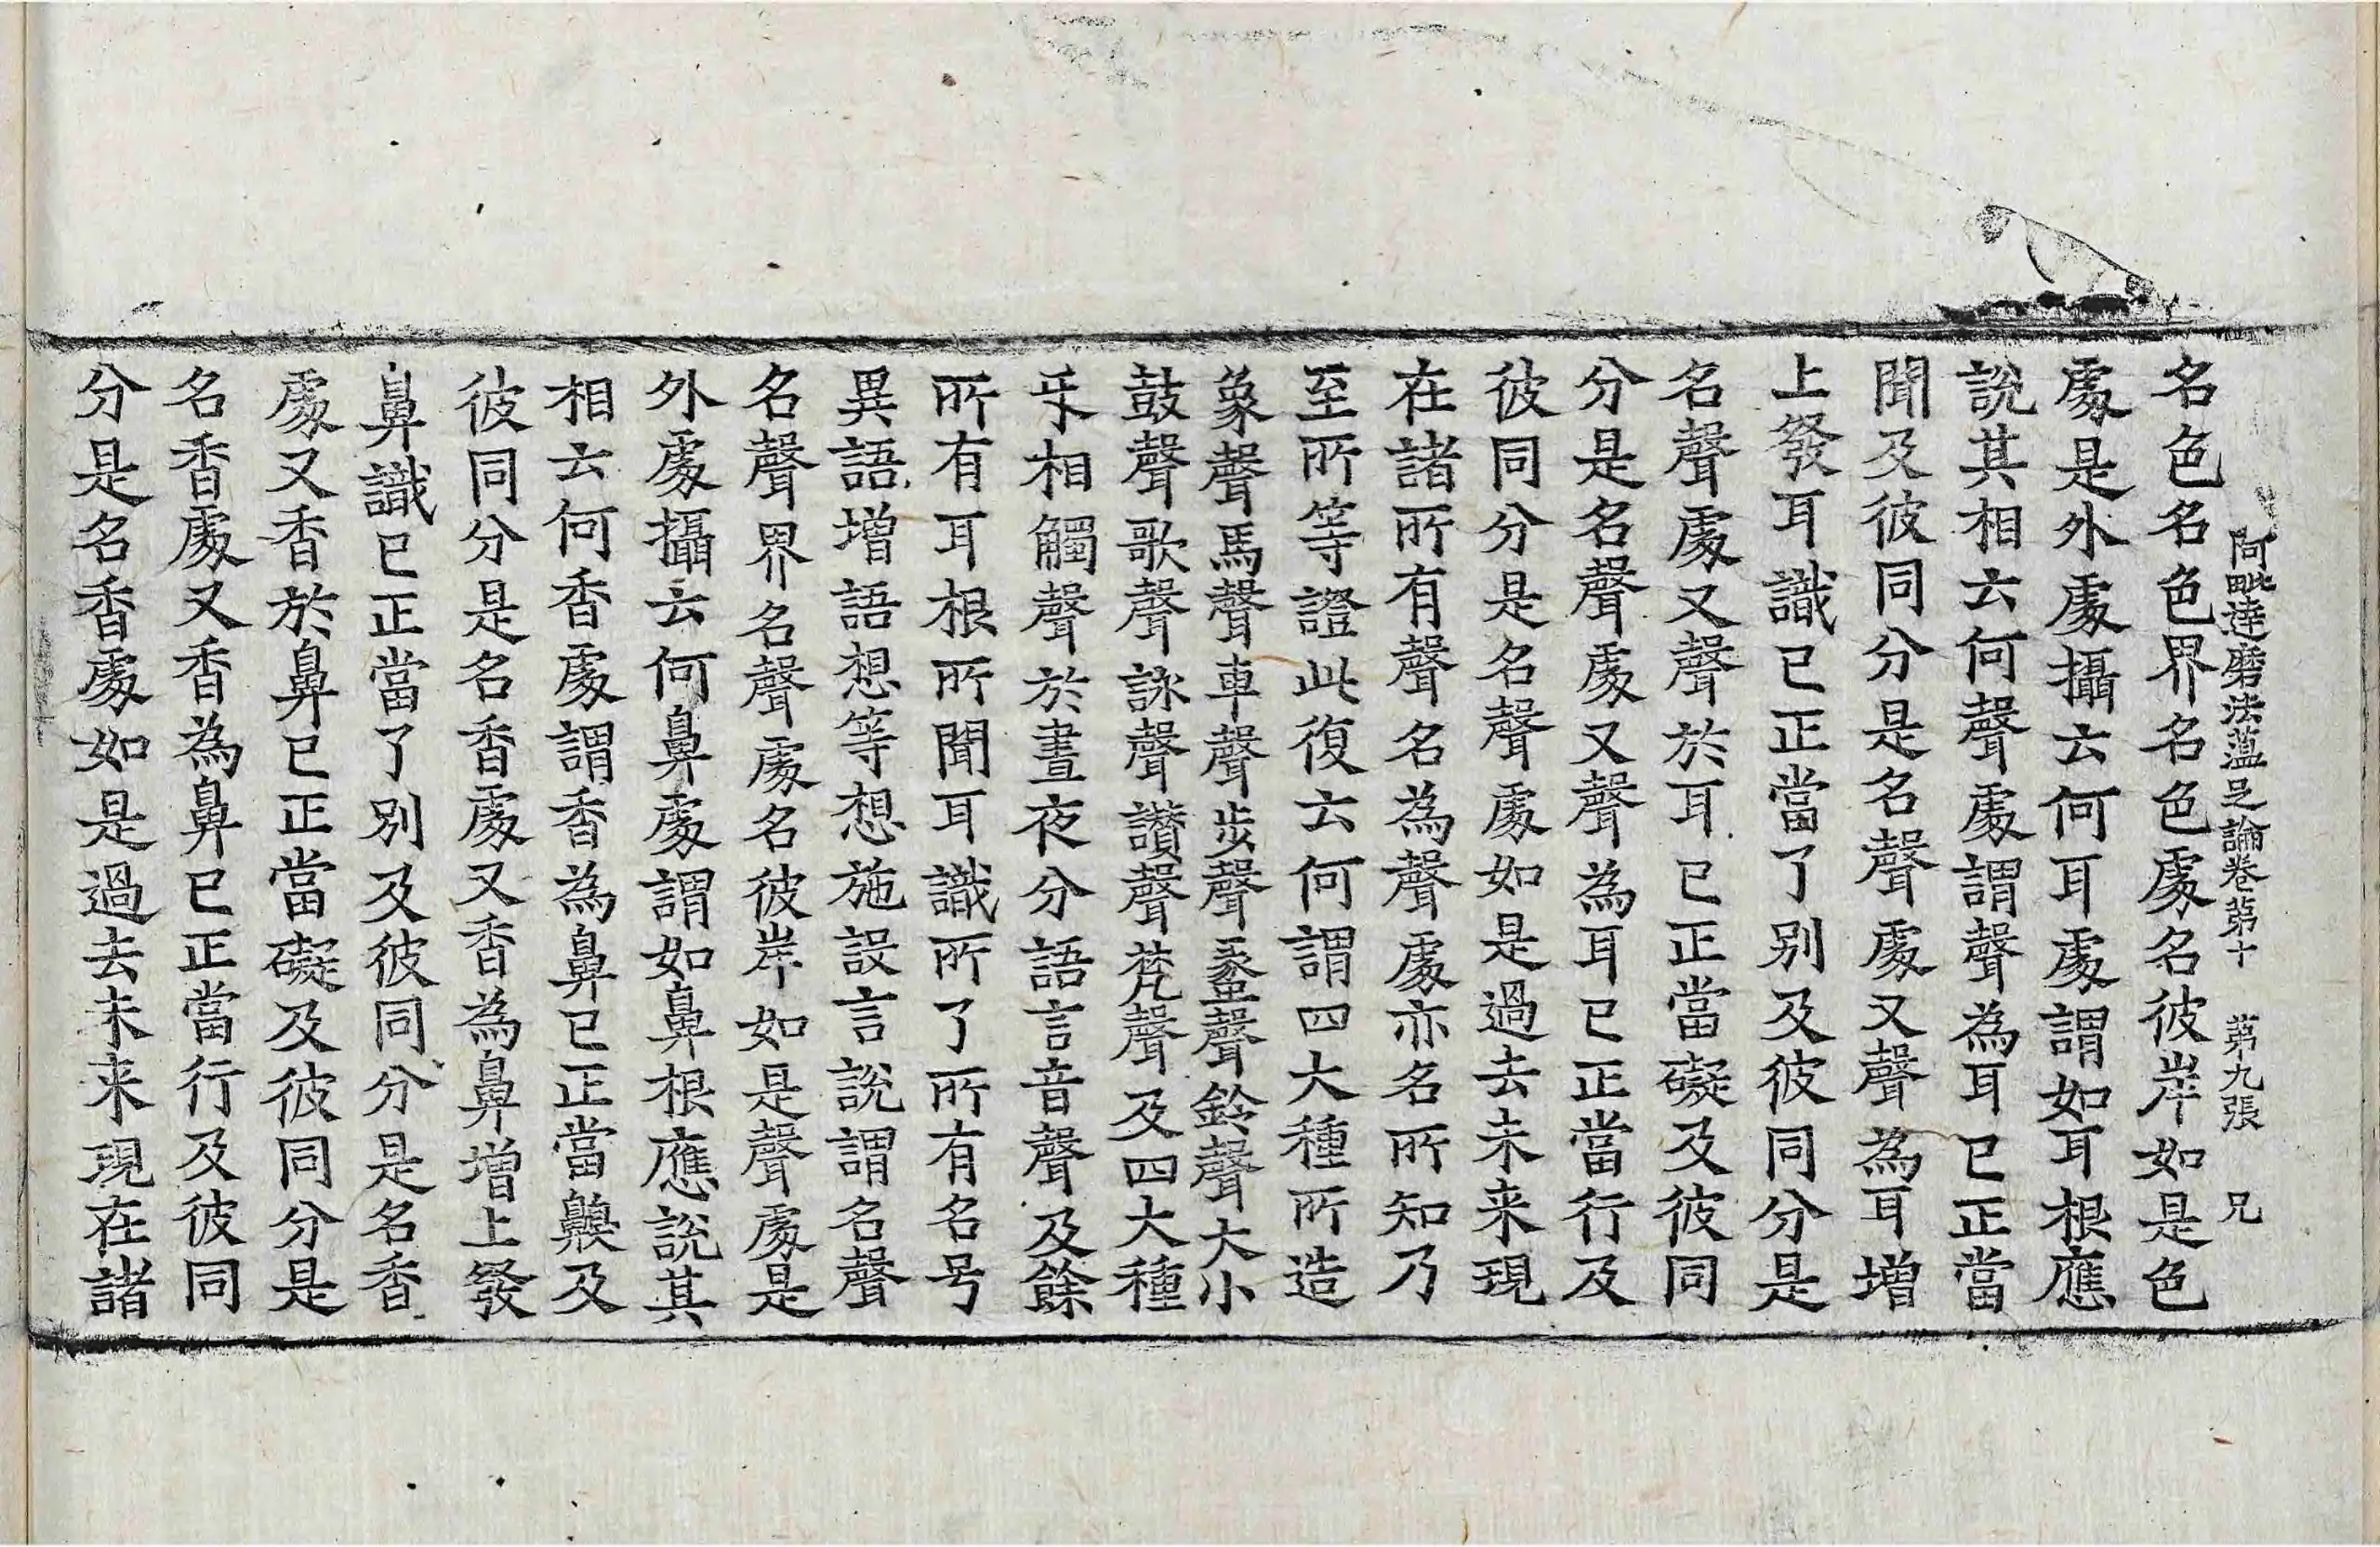 阿毗達磨法蘊足論卷第十 第九張 兄
名色名色界名色處名彼岸如是色
處是外處攝云何耳處謂如耳根應
說其相云何聲處謂聲為耳已正當
聞及彼同分是名聲處又聲為耳增
上發耳識已正當了別及彼同分是
名聲處又聲於耳已正當礙及彼同
分是名聲處又聲為耳已正當行及
彼同分是名聲處如是過去未来現
在諸所有聲名為聲處亦名所知乃
至所等證此復云何謂四大種所造
象聲馬聲車聲步聲䗍聲鈴聲大小
鼓聲歌聲詠聲讃聲梵聲及四大種
㸦相觸聲於晝夜分語言音聲及餘
所有耳根所聞耳識所了所有名号
異語增語想等想施設言說謂名聲
名聲界名聲處名彼岸如是聲處是
外處攝云何鼻處謂如鼻根應說其
相云何香處謂香為鼻已正當齅及
彼同分是名香處又香為鼻增上發
鼻識已正當了別及彼同分是名香
處又香於鼻已正當礙及彼同分是
名香處又香為鼻已正當行及彼同
分是名香處如是過去未来現在諸